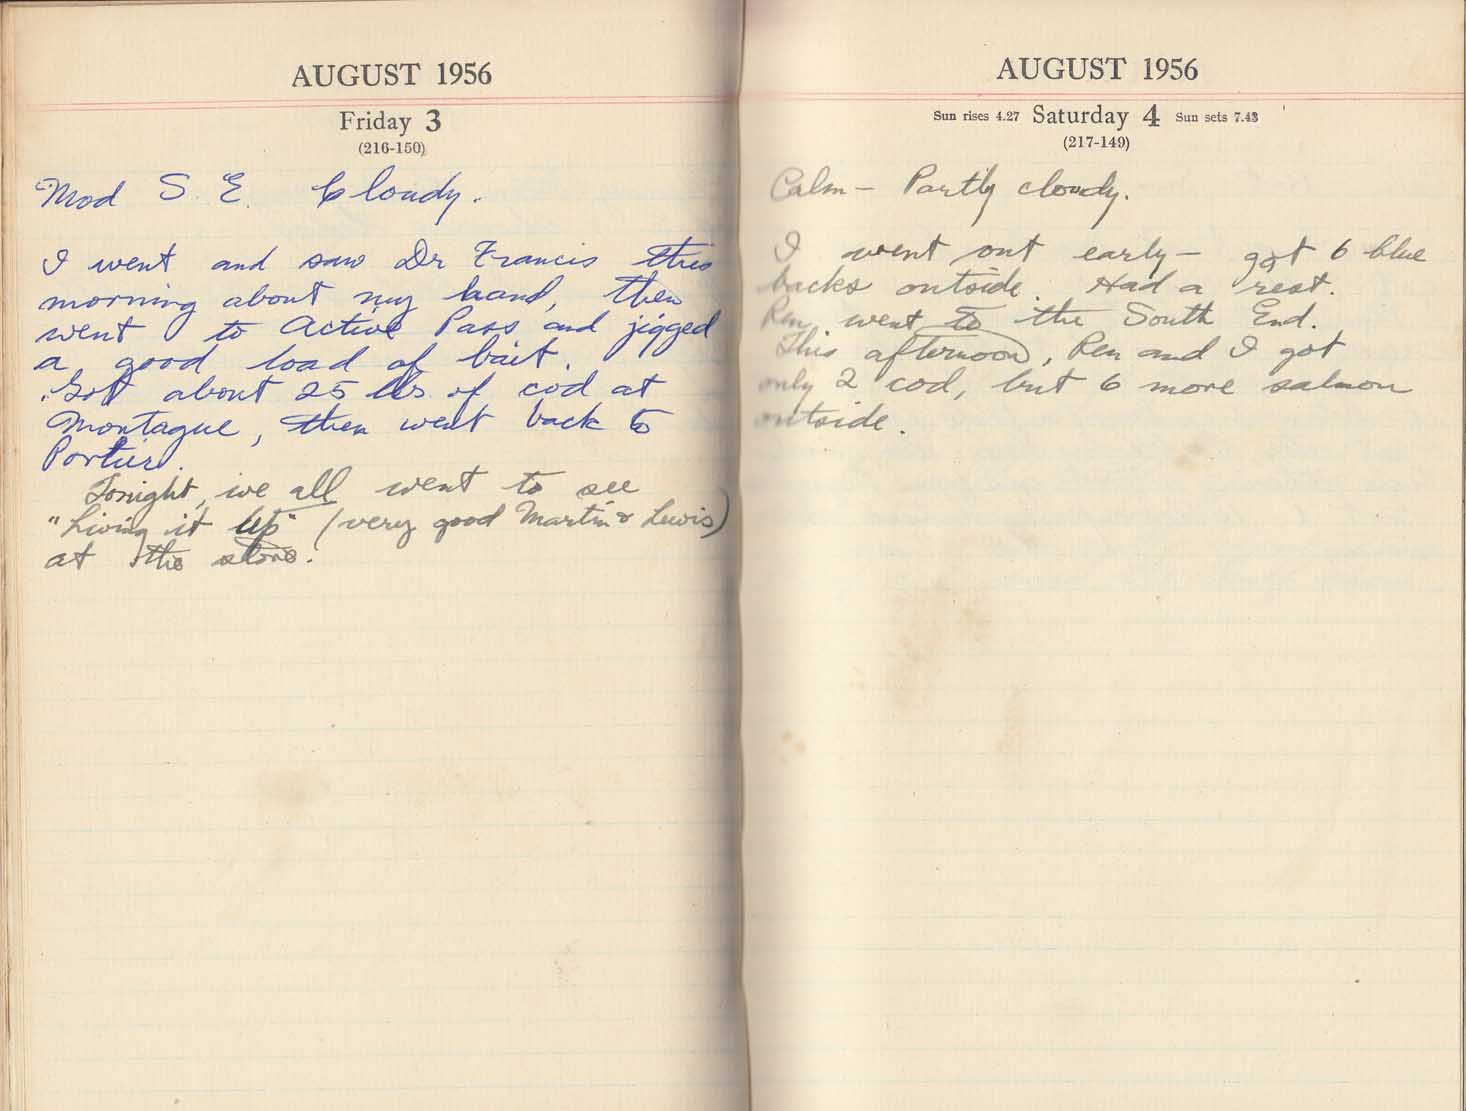 AUGUST 1956
Friday 3
(216-150)
Mod S. E. Cloudy.
I went and saw Dr Francis this
morning about my hand, then
went to Active Pass and jigged
a good load of bait.
Got about 25 lbs. of cod at
Montague, then went back to
Portier.
Tonight, we all went to see
"Living it Up" (very good Martin & Lewis)
at the store.
AUGUST 1956
Sun rises 4.27 Saturday 4 Sun sets 7.43
(217-149)
Calm - Partly cloudy.
I went out early - got 6 blue
backs outside. Had a rest.
Ren went to the South End.
This afternoon, Ren and I got
only 2 cod, but 6 more salmon
outside.